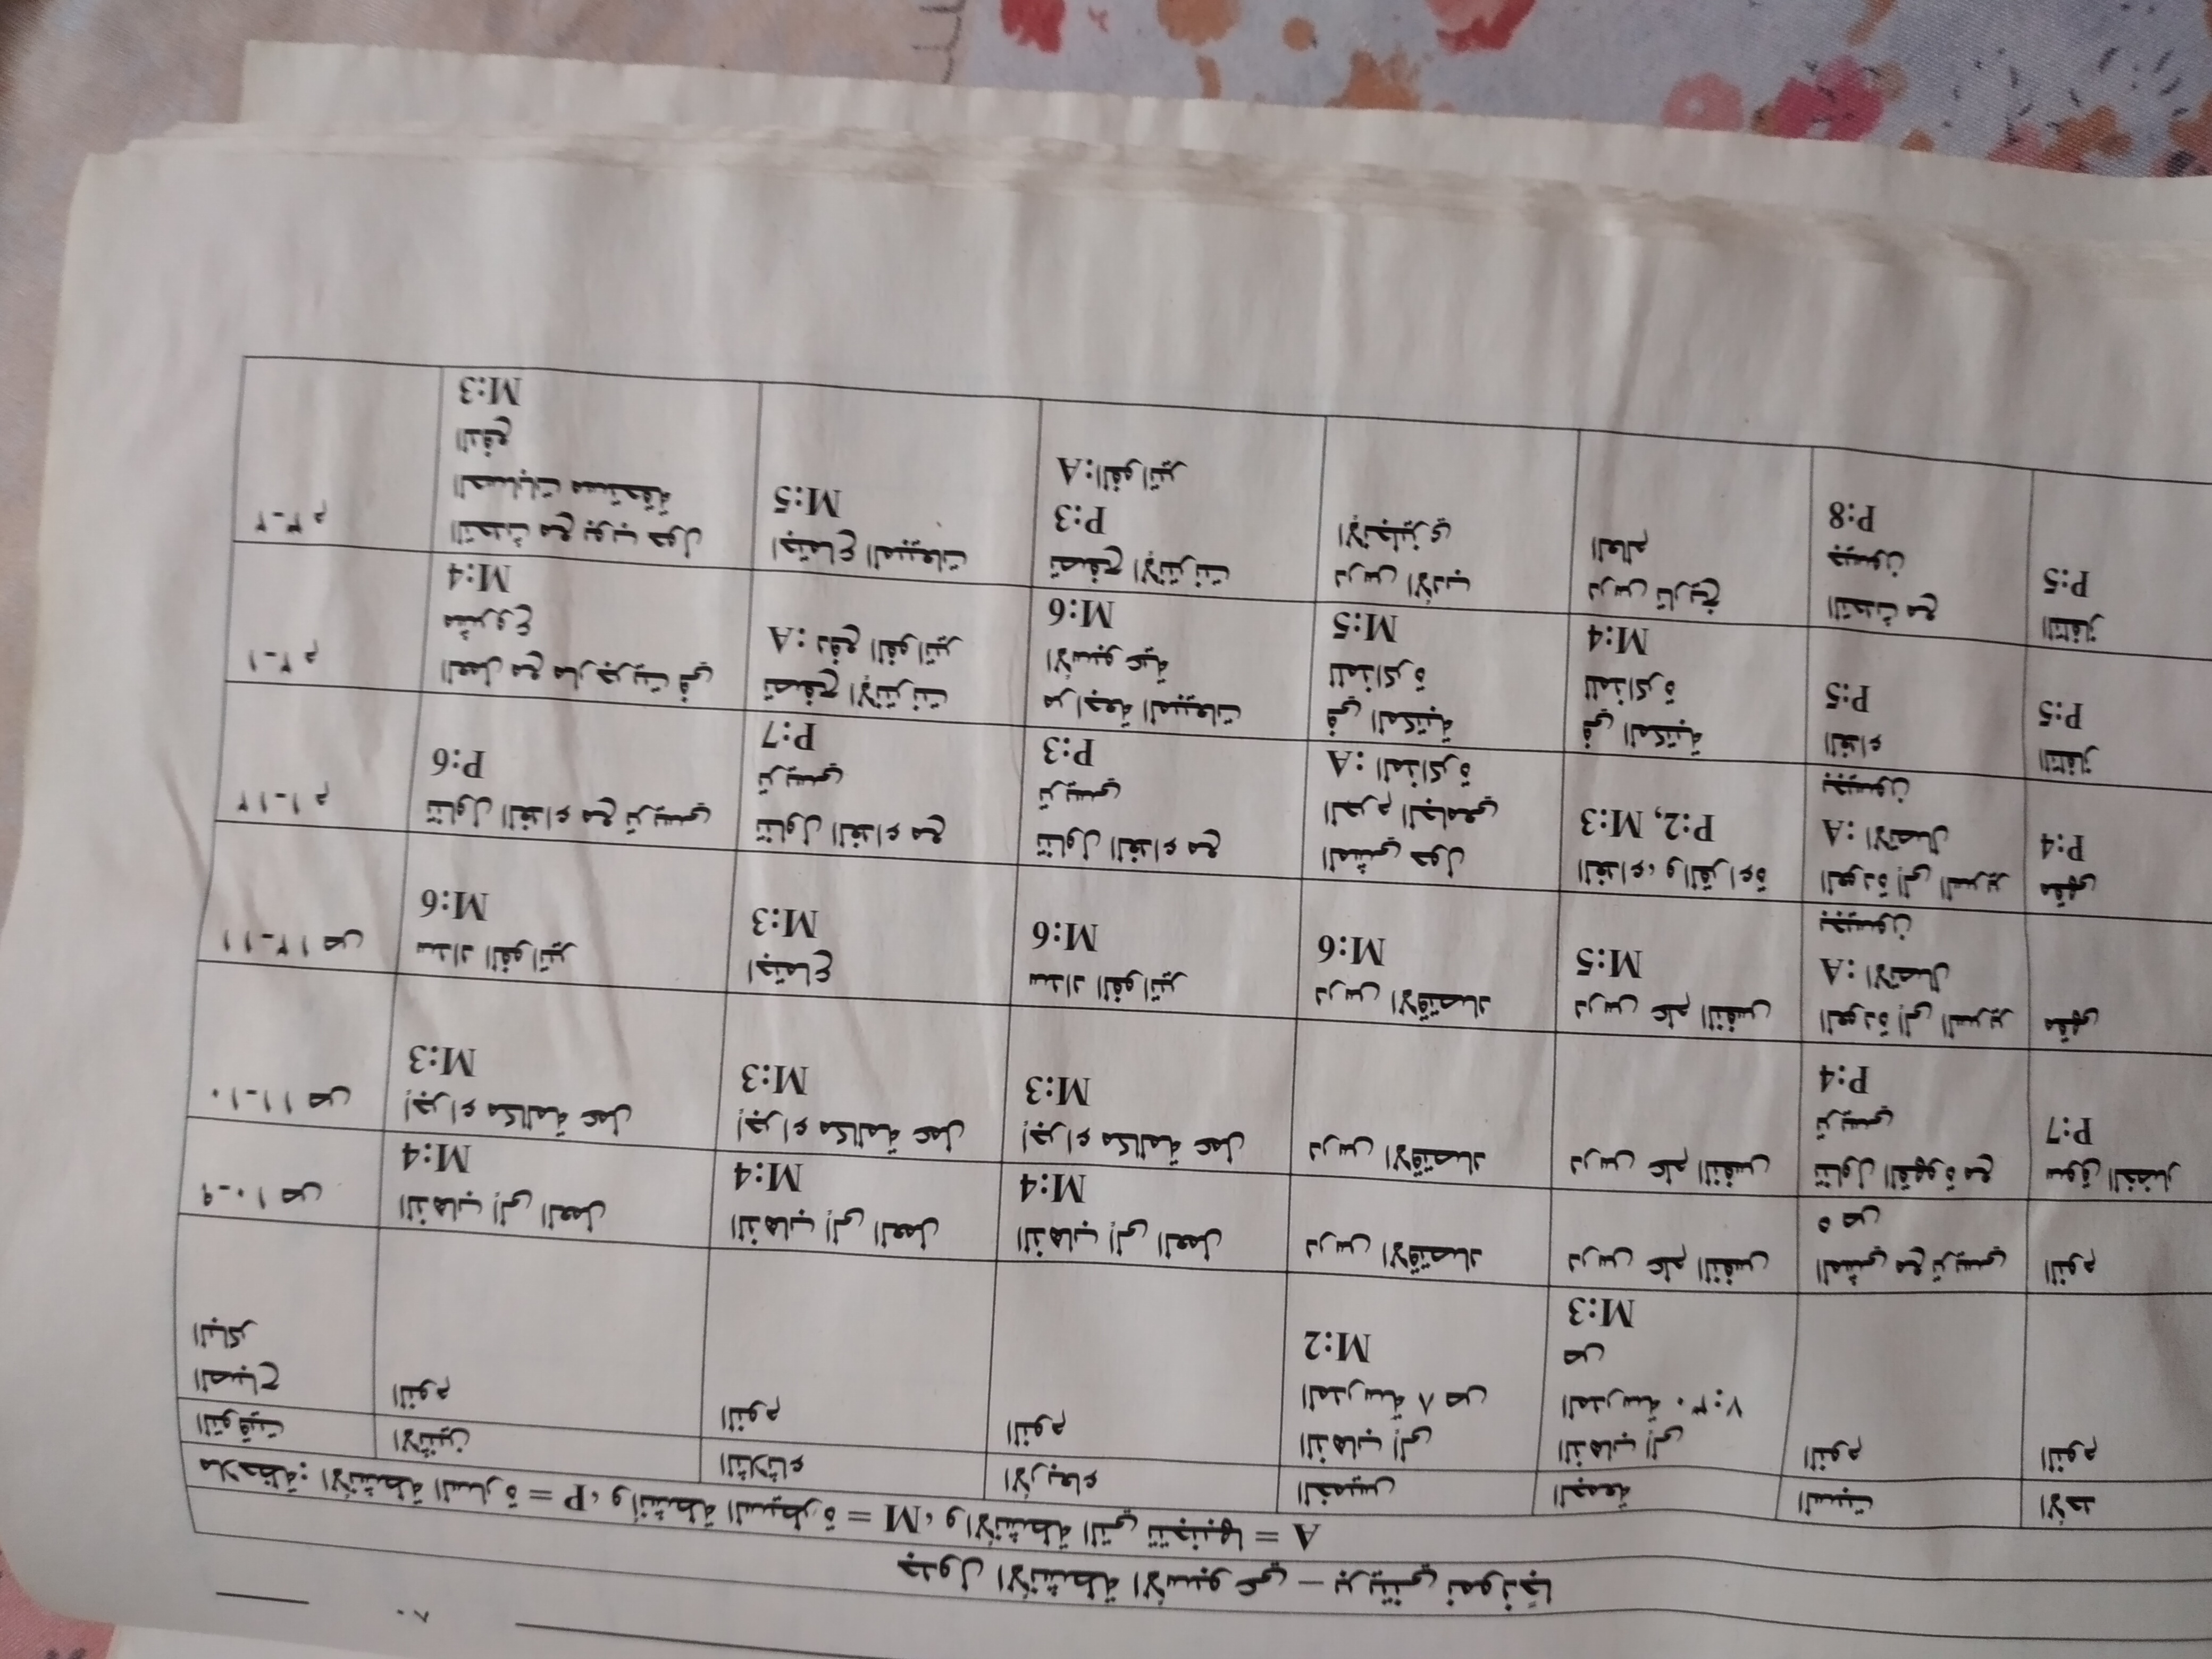 ٨٠
جدول الأنشطة الأسبوعي – بريتني نموذجًا
ملاحظة: الأنشطة السارة = P، وأنشطة السيطرة = M، والأنشطة التي تتجنبها = A
التوقيت الاثنين الثلاثاء الأربعاء الخميس الجمعة السبت الأحد
الصباح النوم النوم النوم الذهاب إلى الذهاب إلى النوم النوم
الباكر المدرسة ٨ ص المدرسة ٧:٣٠
M:2 ص
M:3
٩-١٠ ص الذهاب إلى العمل الذهاب إلى العمل الذهاب إلى العمل درس الاقتصاد درس علم النفس المشي مع تريسي النوم
M:4 M:4 M:4 ٥ ص
١٠-١١ ص إجراء مكالمة عمل إجراء مكالمة عمل إجراء مكالمة عمل درس الاقتصاد درس علم النفس تناول القهوة مع سوق الخضار
M:3 M:3 M:3 تريسي P:7
P:4
١١-١٢ ص سداد الفواتير اجتماع سداد الفواتير درس الاقتصاد درس علم النفس العودة إلى السرير مقهى
M:6 M:3 M:6 M:6 M:5 A: الاتصال
بجيسون
١٢-١ م تناول الغداء مع تريسي تناول الغداء مع تناول الغداء مع المشي حول الغداء، والقراءة العودة إلى السرير مقهى
P:6 تريسي تريسي الحرم الجامعي P:2, M:3 A: الاتصال P:4
P:7 P:3 A: المذاكرة بجيسون
١-٢ م العمل مع مارجريت في تصفح الإنترنت مراجعة المبيعات في المكتبة في المكتبة الغداء التلفاز
مشروع A: دفع الفواتير الأسبوعية للمذاكرة للمذاكرة P:5 P:5
M:4 M:6 M:5 M:4
٢-٣ م التحدث مع بوب حول اجتماع المبيعات تصفح الإنترنت درس الأدب درس تاريخ التحدث مع التلفاز
الحسابات مستحقة M:5 P:3 الإنجليزي العالم جيسون P:5
الدفع A:الفواتير P:8
M:3